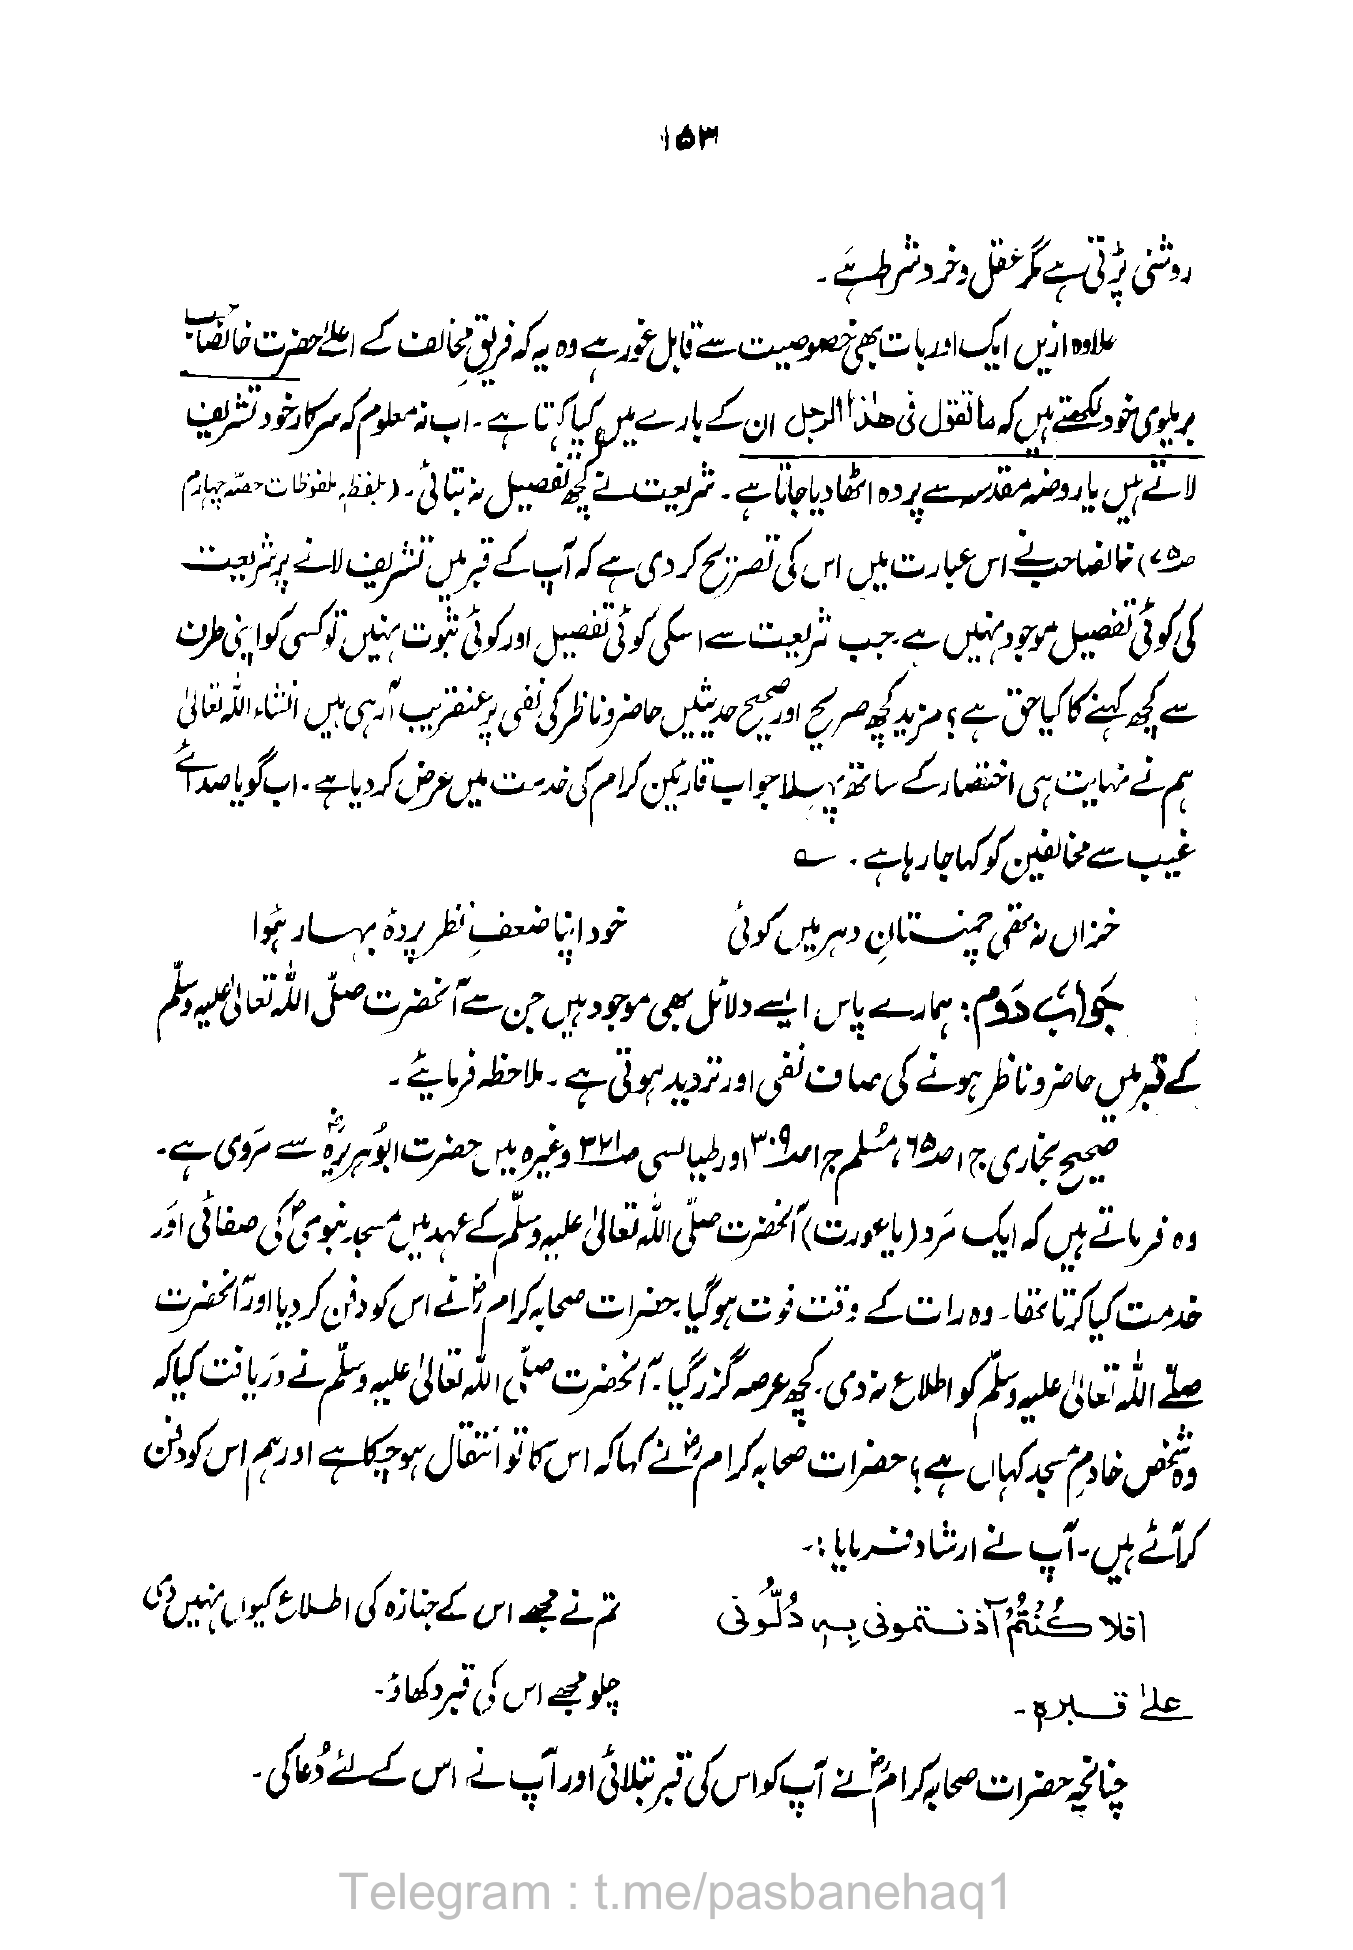 ۱۵۳
روشنی پڑتی ہے مگر عقل و خرد شرط ہے۔
علاوہ ازیں ایک اور بات بھی خصوصیت سے قابل غور ہے وہ یہ کہ فریقِ مخالف کے اعلےٰ حضرت خانصاحب
بریلوی خود لکھتے ہیں کہ ما تقول فی ھٰذا الرجل ان کے بارے میں کیا کہتا ہے۔ اب نہ معلوم کہ سرکار خود تشریف
لاتے ہیں یا روضہ مقدسہ سے پردہ اٹھا دیا جاتا ہے۔ شریعت نے کچھ تفصیل نہ بتائی۔ (بلفظہٖ ملفوظات حصّہ چہارم
ص۷۵) خانصاحب نے اس عبارت میں اس کی تصریح کر دی ہے کہ آپ کے قبر میں تشریف لانے پر شریعت
کی کوئی تفصیل موجود نہیں ہے۔ جب شریعت سے اسکی کوئی تفصیل اور کوئی ثبوت نہیں تو کسی کو اپنی طرف
سے کچھ کہنے کا کیا حق ہے؟ مزید کچھ صریح اور صحیح حدیثیں حاضر و ناظر کی نفی پر عنقریب آرہی ہیں انشاء اللہ تعالیٰ
ہم نے نہایت ہی اختصار کے ساتھ پہلا جواب قارئین کرام کی خدمت میں عرض کر دیا ہے۔ اب گویا صدائے
غیب سے مخالفین کو کہا جا رہا ہے۔ ؎
خزاں نہ تھی چمنستانِ دہر میں کوئی خود اپنا ضعفِ نظر پردۂ بہار ہُوا
جوابِ دَوم: ہمارے پاس ایسے دلائل بھی موجود ہیں جن سے آنحضرت صلّی اللہ تعالیٰ علیہ وسلّم
کے قبر میں حاضر و ناظر ہونے کی صاف نفی اور تردید ہوتی ہے۔ ملاحظہ فرمایئے۔
صحیح بخاری ج۱ ص۶۵، مُسلم ج۱ ص۳۰۹ اور طیالسی ص۳۲۱ وغیرہ میں حضرت ابُوہریرہؓ سے مَروی ہے۔
وہ فرماتے ہیں کہ ایک مَرد (یا عورت) آنحضرت صلّی اللہ تعالیٰ علیہ وسلّم کے عہد میں مسجد نبویؐ کی صفائی اوَر
خدمت کیا کرتا تھا۔ وہ رات کے وقت فوت ہو گیا۔ حضرات صحابہ کرامؓ نے اس کو دفن کر دیا اور آنحضرت
صلّے اللہ تعالیٰ علیہ وسلّم کو اطلاع نہ دی۔ کچھ عرصہ گزر گیا۔ آنحضرت صلّی اللہ تعالیٰ علیہ وسلّم نے دَریافت کیا کہ
وہ شخص خادمِ مسجد کہاں ہے؟ حضرات صحابہ کرامؓ نے کہا کہ اس کا تو انتقال ہو چکا ہے اور ہم اس کو دفن
کر آئے ہیں۔ آپ نے ارشاد فرمایا:۔
افلا کُنْتُمْ آذنتمونی بہٖ دُلُّونی تم نے مجھے اس کے جنازہ کی اطلاع کیوں نہیں دی
علیٰ قبرہ۔ چلو مجھے اس کی قبر دکھاؤ۔
چنانچہ حضرات صحابہ کرامؓ نے آپ کو اس کی قبر بتلائی اور آپ نے اس کے لئے دُعا کی۔
Telegram : t.me/pasbanehaq1